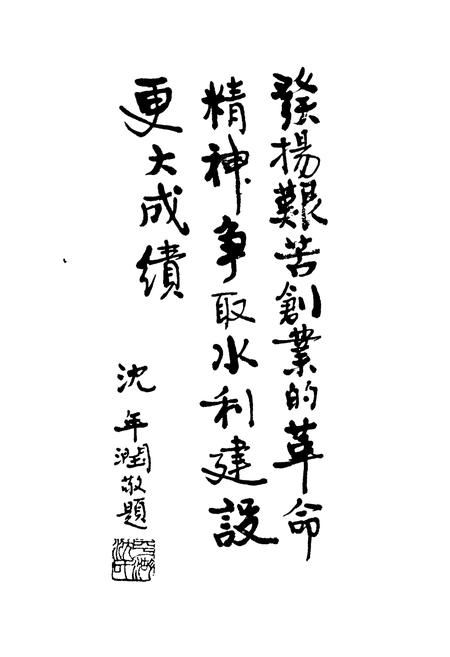 發揚艱苦創業的革命
精神争取水利建設
更大成績
沈年潤敬題